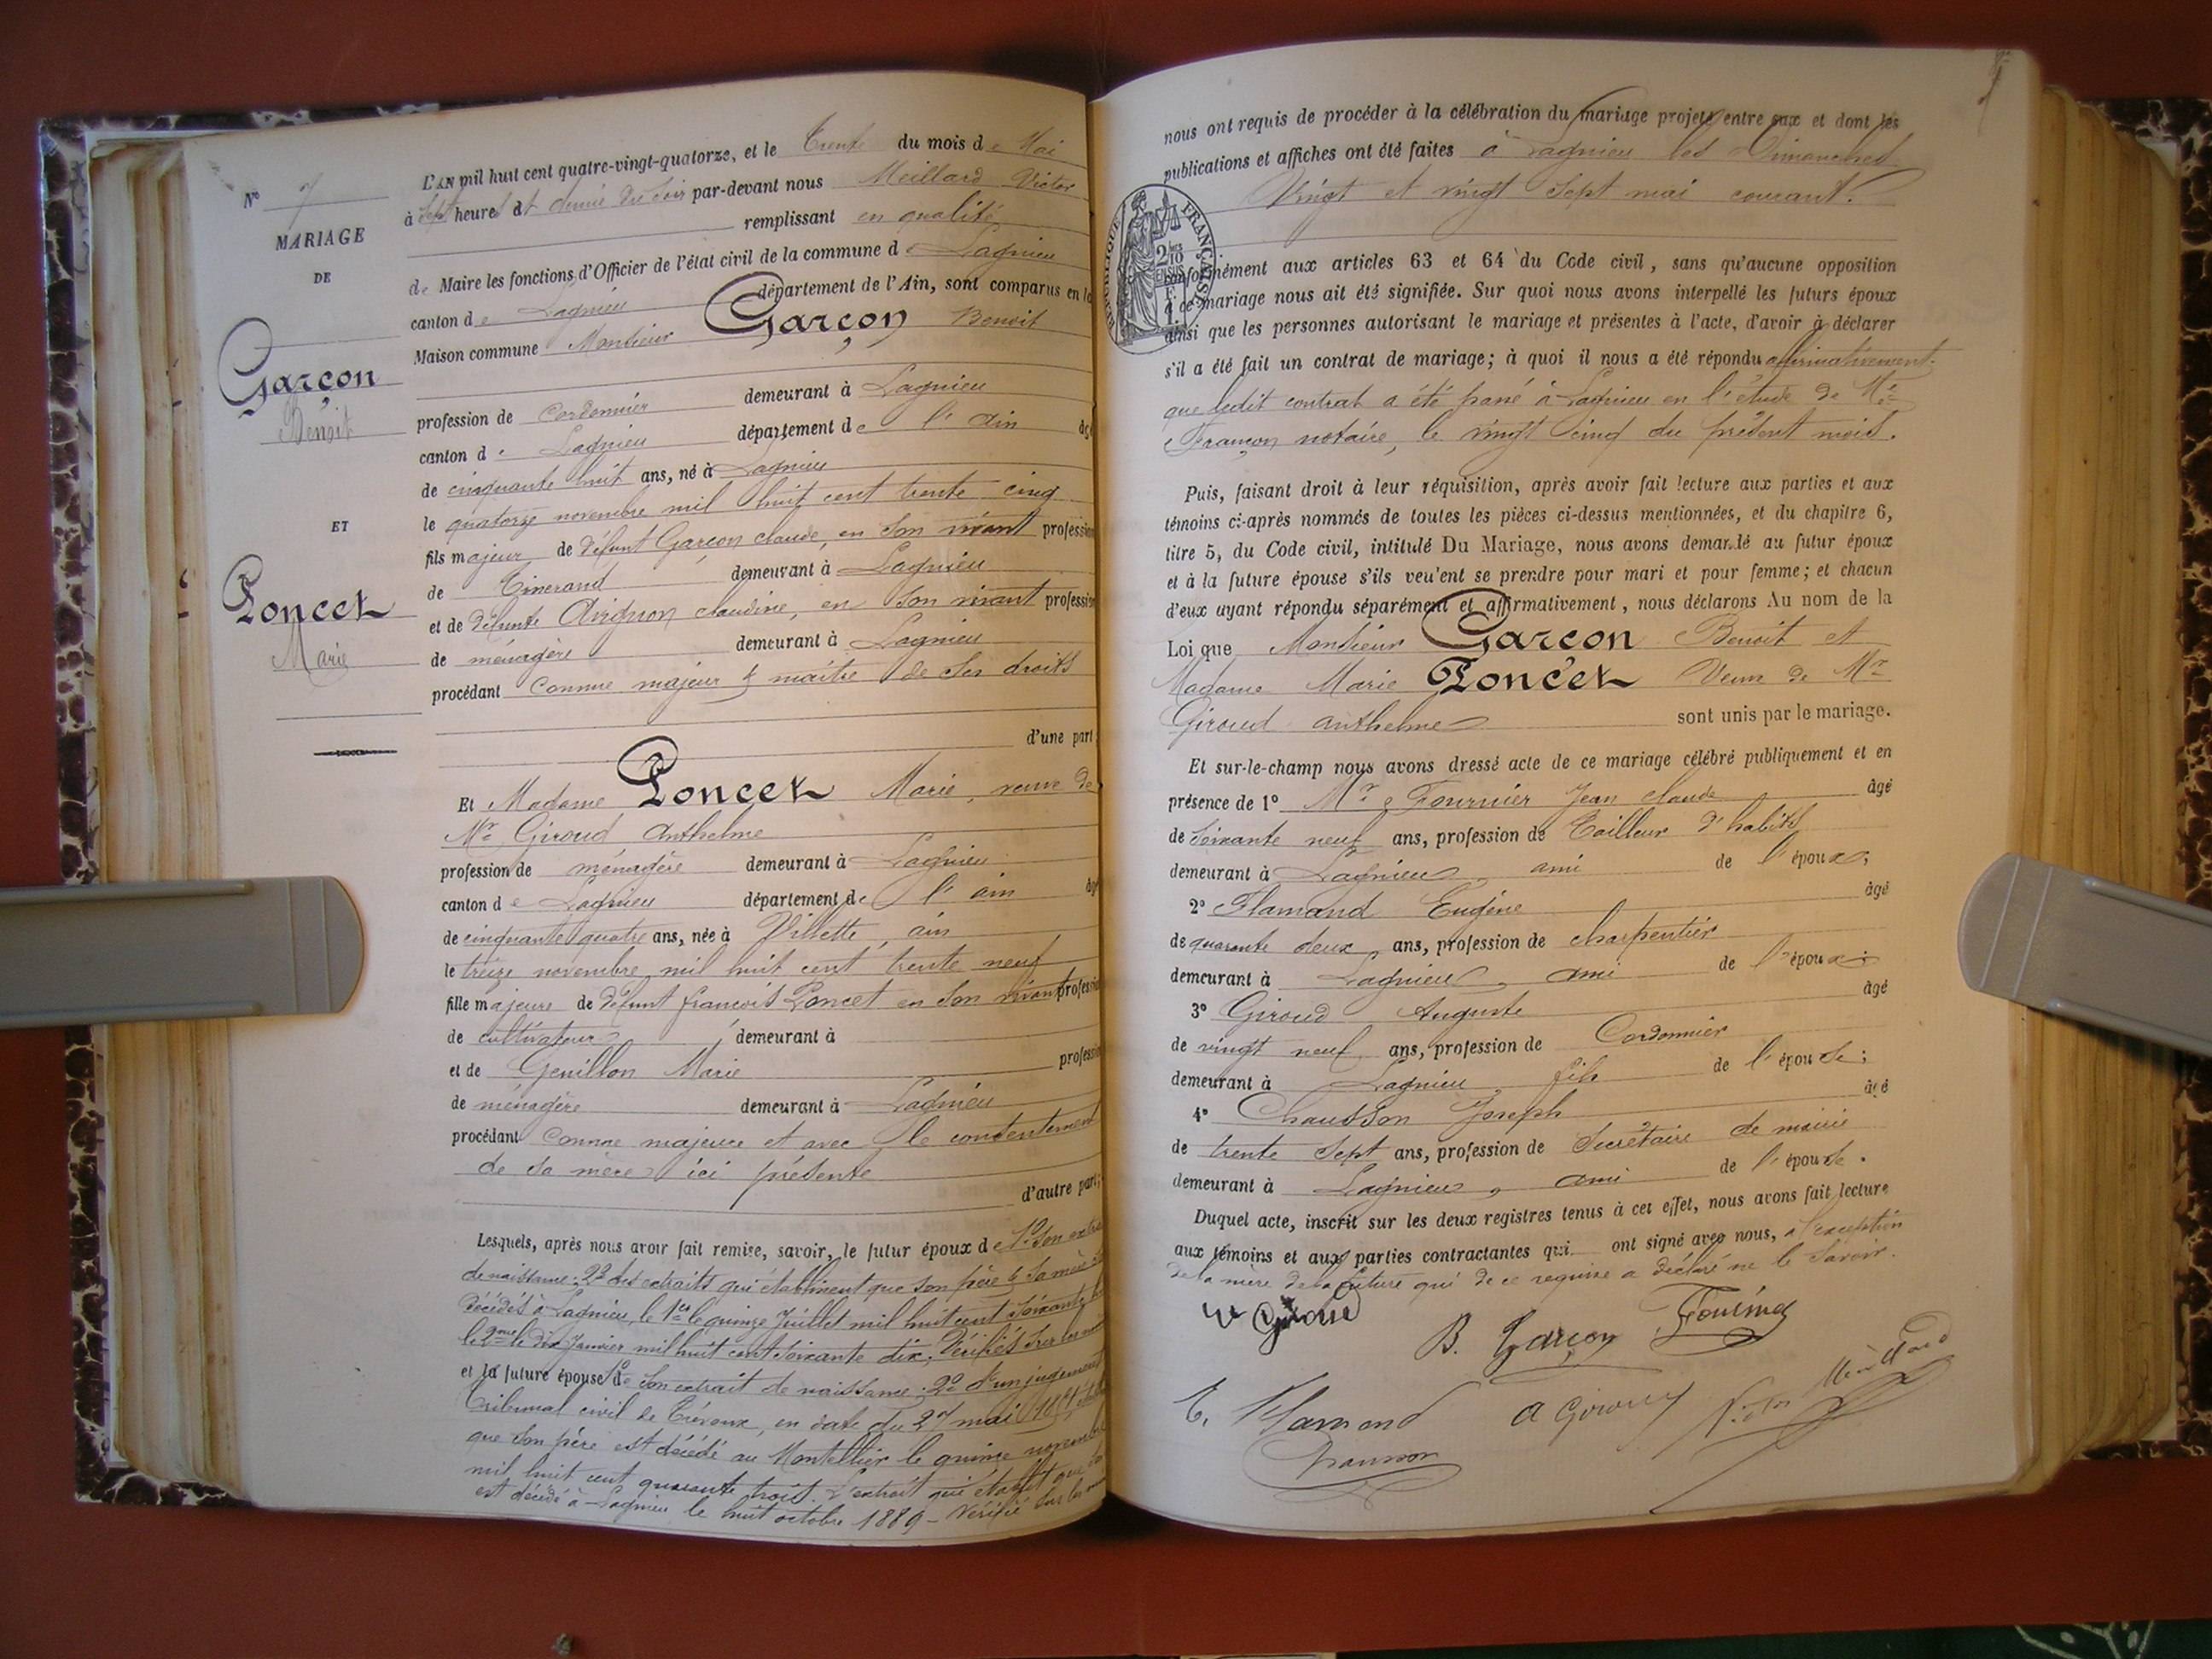 N° 7
MARIAGE
DE
Garçon
Benoit
ET
Poncet
Marie
L'AN mil huit cent quatre-vingt-quatorze, et le Trente du mois de Mai
à Sept heures et demie du soir par-devant nous Meillard Victor
remplissant en qualité
de Maire les fonctions d'Officier de l'état civil de la commune de Lagnieu
canton de Lagnieu département de l'Ain, sont comparus en la
Maison commune Monsieur Garçon Benoit
profession de Cordonnier demeurant à Lagnieu
canton de Lagnieu département de l'Ain âgé
de cinquante huit ans, né à Lagnieu
le quatorze novembre mil huit cent trente cinq
fils majeur de défunt Garçon claude, en son vivant profession
de Tisserand demeurant à Lagnieu
et de défunte Avignon claudine, en son vivant profession
de ménagère demeurant à Lagnieu
procédant Comme majeur & maitre de ses droits
d'une part;
Et Madame Poncet Marie, veuve de
Mr Giroud Anthelme
profession de ménagère demeurant à Lagnieu
canton de Lagnieu département de l'ain âgé
de cinquante quatre ans, née à Villette, ain
le treize novembre mil huit cent trente neuf
fille majeure de défunt françois Poncet en son vivant profession
de cultivateur demeurant à
et de Genillon Marie profession
de ménagère demeurant à Lagnieu
procédant comme majeure et avec le consentement
de sa mère ici présente
d'autre part;
Lesquels, après nous avoir fait remise, savoir, le futur époux de 1° Son extrait
de naissance; 2° des extraits qui établissent que son père & sa mère
décédés à Lagnieu, le 1er le quinze Juillet mil huit cent soixante
le 2me le dix Janvier mil huit cent soixante dix, Vérifiés sur les
et la future épouse 1° de son extrait de naissance; 2° d'un jugement
Tribunal civil de Trévoux, en date du 27 mai
que son père est décédé au Montellier le quinze novembre
mil huit cent quarante trois. L'extrait qui établit que
est décédé à Lagnieu le huit octobre 1889 - Vérifié sur les
nous ont requis de procéder à la célébration du mariage projeté entre eux et dont les
publications et affiches ont été faites à Lagnieu les Dimanches
Vingt et vingt Sept mai courant.
RÉPUBLIQUE FRANÇAISE
2/10 EN SUS
conformément aux articles 63 et 64 du Code civil, sans qu'aucune opposition
à ce mariage nous ait été signifiée. Sur quoi nous avons interpellé les futurs époux
ainsi que les personnes autorisant le mariage et présentes à l'acte, d'avoir à déclarer
s'il a été fait un contrat de mariage; à quoi il nous a été répondu affirmativement
que ledit contrat a été passé à Lagnieu en l'étude de Me
Françon notaire, le vingt cinq du présent mois.
Puis, faisant droit à leur réquisition, après avoir fait lecture aux parties et aux
témoins ci-après nommés de toutes les pièces ci-dessus mentionnées, et du chapitre 6,
titre 5, du Code civil, intitulé Du Mariage, nous avons demandé au futur époux
et à la future épouse s'ils veulent se prendre pour mari et pour femme; et chacun
d'eux ayant répondu séparément et affirmativement, nous déclarons Au nom de la
Loi que Monsieur Garçon Benoit et
Madame Marie Poncet Veuve de Mr
Giroud anthelme sont unis par le mariage.
Et sur-le-champ nous avons dressé acte de ce mariage célébré publiquement et en
présence de 1° Mr Fournier Jean claude âgé
de Soixante neuf ans, profession de Tailleur d'habits
demeurant à Lagnieu, ami de l'époux;
2° Flamand Eugène âgé
de quarante deux ans, profession de charpentier
demeurant à Lagnieu, ami de l'époux;
3° Giroud Auguste âgé
de vingt neuf ans, profession de Cordonnier
demeurant à Lagnieu, fils de l'épouse;
4° Chausson Joseph âgé
de trente Sept ans, profession de Secrétaire de mairie
demeurant à Lagnieu, ami de l'épouse.
Duquel acte, inscrit sur les deux registres tenus à cet effet, nous avons fait lecture
aux témoins et aux parties contractantes qui ont signé avec nous, à l'exception
de la mère de la future qui de ce requise a déclaré ne le savoir.
B. Garçon
E. Flamand
A Giroud
Victor Meillard